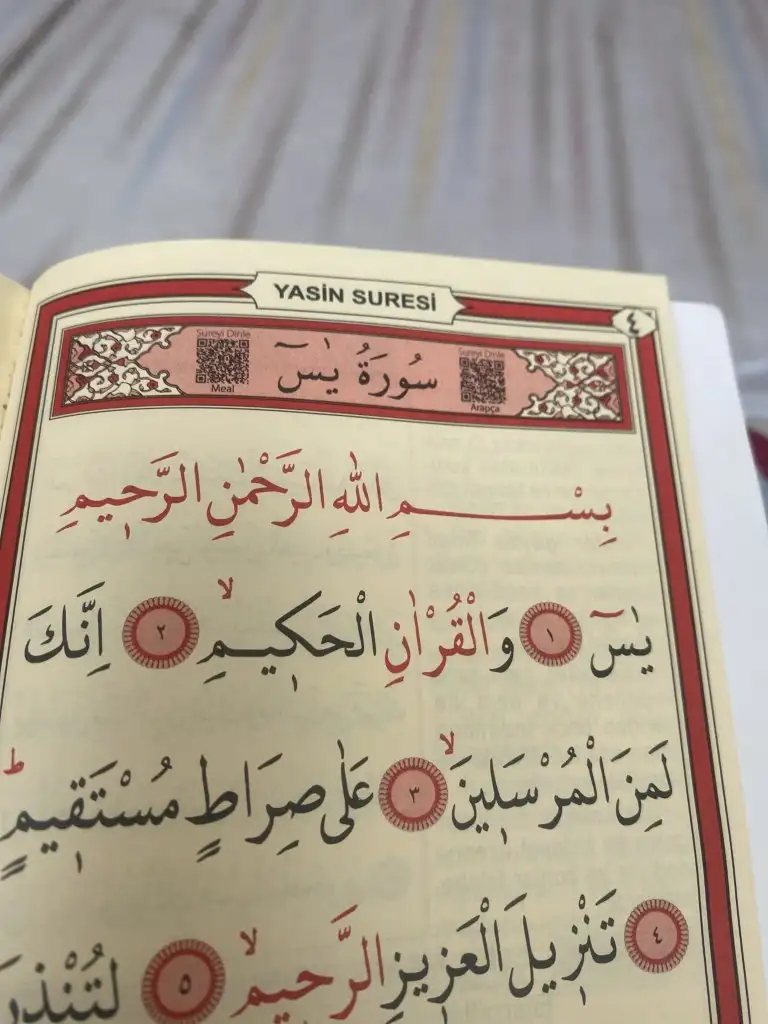 YASİN SURESİ
٤
Sureyi Dinle
Meal
سُورَةُ يٰسٓ
Sureyi Dinle
Arapça
بِسْمِ اللّٰهِ الرَّحْمٰنِ الرَّح۪يمِ
يٰسٓ ١ وَالْقُرْاٰنِ الْحَك۪يمِۙ ٢ اِنَّكَ
لَمِنَ الْمُرْسَل۪ينَۙ ٣ عَلٰى صِرَاطٍ مُسْتَق۪يمٍۜ
٤ تَنْز۪يلَ الْعَز۪يزِ الرَّح۪يمِۙ ٥ لِتُنْذِرَ